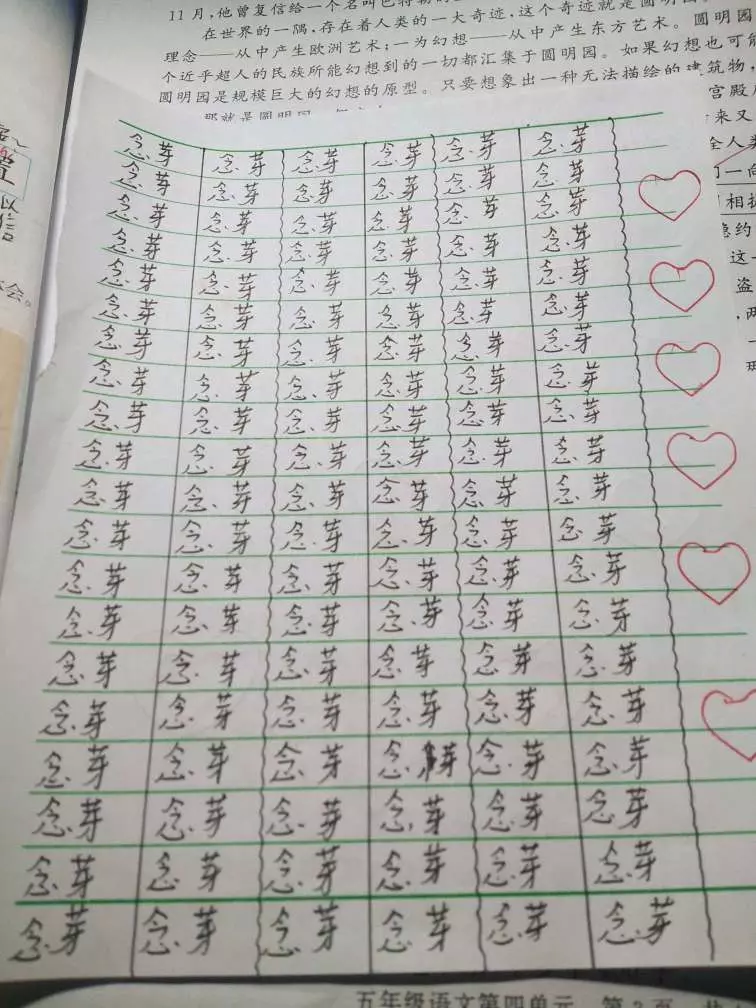 11月,他曾复信给一个名叫巴特勒的
在世界的一隅,存在着人类的一大奇迹,这个奇迹就是圆明园。
理念——从中产生欧洲艺术;一为幻想——从中产生东方艺术。圆明园
个近乎超人的民族所能幻想到的一切都汇集于圆明园。如果幻想也可能
圆明园是规模巨大的幻想的原型。只要想象出一种无法描绘的建筑物,
那就是圆明园
宫殿
来又
全人类
一向
相
约
这一
盗
,两
会。
念芽 念芽 念芽 念芽 念芽 念芽
念芽 念芽 念芽 念芽 念芽 念芽
念芽 念芽 念芽 念芽 念芽 念芽
念芽 念芽 念芽 念芽 念芽 念芽
念芽 念芽 念芽 念芽 念芽 念芽
念芽 念芽 念芽 念芽 念芽 念芽
念芽 念芽 念芽 念芽 念芽 念芽
念芽 念芽 念芽 念芽 念芽 念芽
念芽 念芽 念芽 念芽 念芽 念芽
念芽 念芽 念芽 念芽 念芽 念芽
念芽 念芽 念芽 念芽 念芽 念芽
念芽 念芽 念芽 念芽 念芽 念芽
念芽 念芽 念芽 念芽 念芽 念芽
念芽 念芽 念芽 念芽 念芽 念芽
念芽 念芽 念芽 念芽 念芽 念芽
念芽 念芽 念芽 念芽 念芽 念芽
念芽 念芽 念芽 念芽 念芽 念芽
念芽 念芽 念芽 念芽 念芽 念芽
念芽 念芽 念芽 念芽 念芽 念芽
念芽 念芽 念芽 念芽 念芽 念芽
五年级语文第四单元 第2页 共